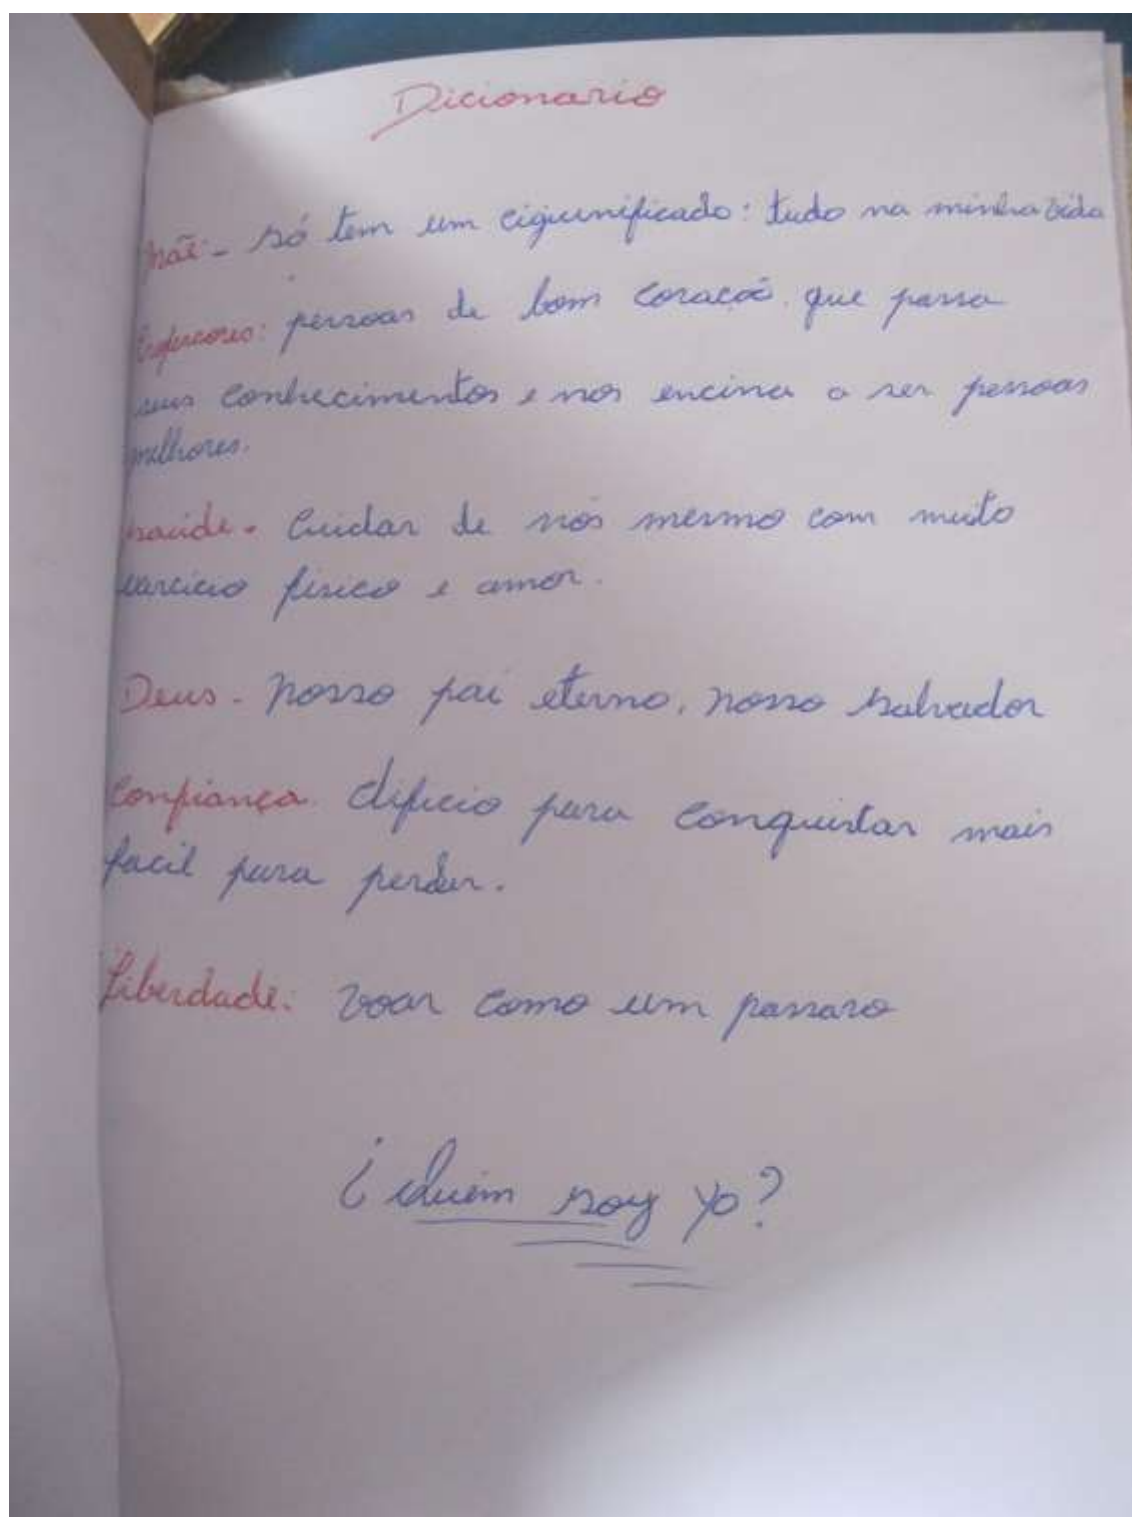 Dicionario
Mãe - só tem um cigiunificado: tudo na minha vida
Profecores: pessoas de bom coração que passa
seus conhecimentos e nos encina a ser pessoas
melhores.
saúde. Cuidar de nós mesmo com muito
exarcicio fisico e amor.
Deus - nosso pai eterno, nosso salvador
Confiança dificio para conquistar mais
facil para perder.
Liberdade: voar como um passaro
¿Quém soy yo?